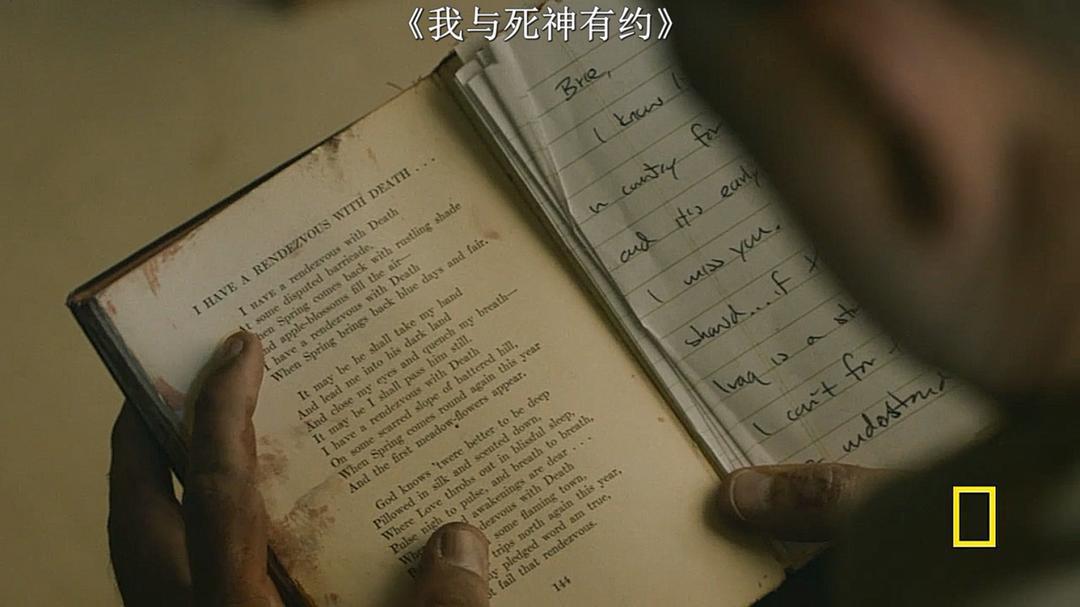 《我与死神有约》
I HAVE A RENDEZVOUS WITH DEATH . . .
I HAVE a rendezvous with Death
At some disputed barricade,
When Spring comes back with rustling shade
And apple-blossoms fill the air—
I have a rendezvous with Death
When Spring brings back blue days and fair.
It may be he shall take my hand
And lead me into his dark land
And close my eyes and quench my breath—
It may be I shall pass him still.
I have a rendezvous with Death
On some scarred slope of battered hill,
When Spring comes round again this year
And the first meadow-flowers appear.
God knows 'twere better to be deep
Pillowed in silk and scented down,
Where Love throbs out in blissful sleep,
Pulse nigh to pulse, and breath to breath,
awakenings are dear . . .
rendezvous with Death
some flaming town,
trips north again this year,
pledged word am true,
fail that rendezvous.
144
Bree,
I know
country for
and it's early
I miss you.
shared...if
Iraq is a
I can't for
understand